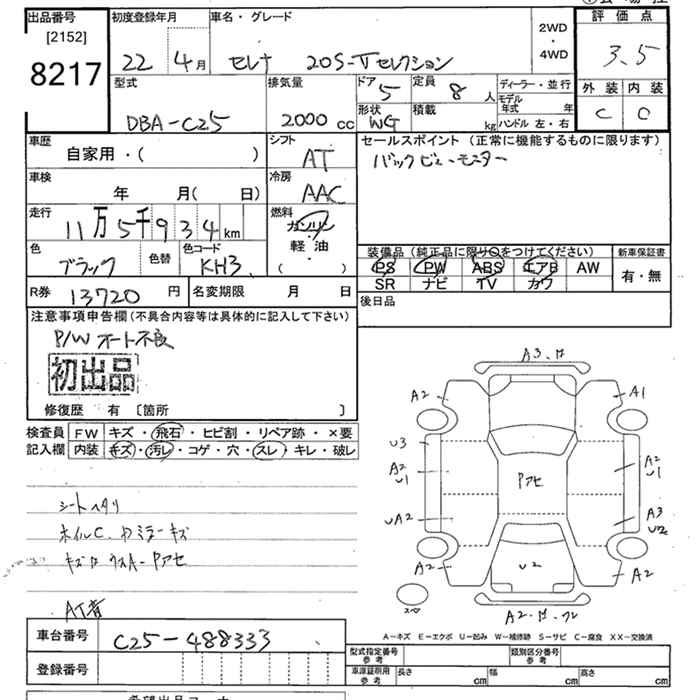 出品番号
[2152]
8217
初度登録年月
22 4月
車名・グレード
セレナ 20S-Vセレクション
2WD
・
4WD
評価点
3.5
外装 内装
C C
型式
DBA-C25
排気量
2000 cc
ドア 5
定員 8 人
形状 WG
積載 kg
ディーラー・並行
モデル年式 年
ハンドル 左・右
車歴
自家用・( )
シフト
AT
セールスポイント (正常に機能するものに限ります)
バックビューモニター
車検
年 月( 日)
冷房
AAC
走行
11万5千934km
燃料
ガソリン
軽油
・
( )
色
ブラック
色替
色コード
KH3
装備品 (純正品に限り○をつけてください)
新車保証書
PS PW ABS エアB AW
SR ナビ TV カワ
有・無
R券 13720 円
名変期限 月 日
後日品
注意事項申告欄 (不具合内容等は具体的に記入して下さい)
P/W オート不良
初出品
修復歴 有 [箇所 ]
検査員
記入欄
FW キズ・飛石・ヒビ割・リペア跡・×要
内装 キズ・汚レ・コゲ・穴・スレ・キレ・破レ
A2
A1
U3
A2
U1
Pアセ
A2
U1
UA2
A3
U2
A2
U2
A2
シートヘタリ
A-キズ E-エクボ U-凹み W-補修跡 S-サビ C-腐食 XX-交換済
車台番号 C25-488333
登録番号
型式指定番号
参考
類別区分番号
参考
車庫証明用
参考
長さ cm
幅 cm
高さ cm